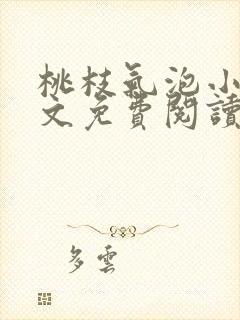 桃枝氣泡小
文免費閱讀
多雲